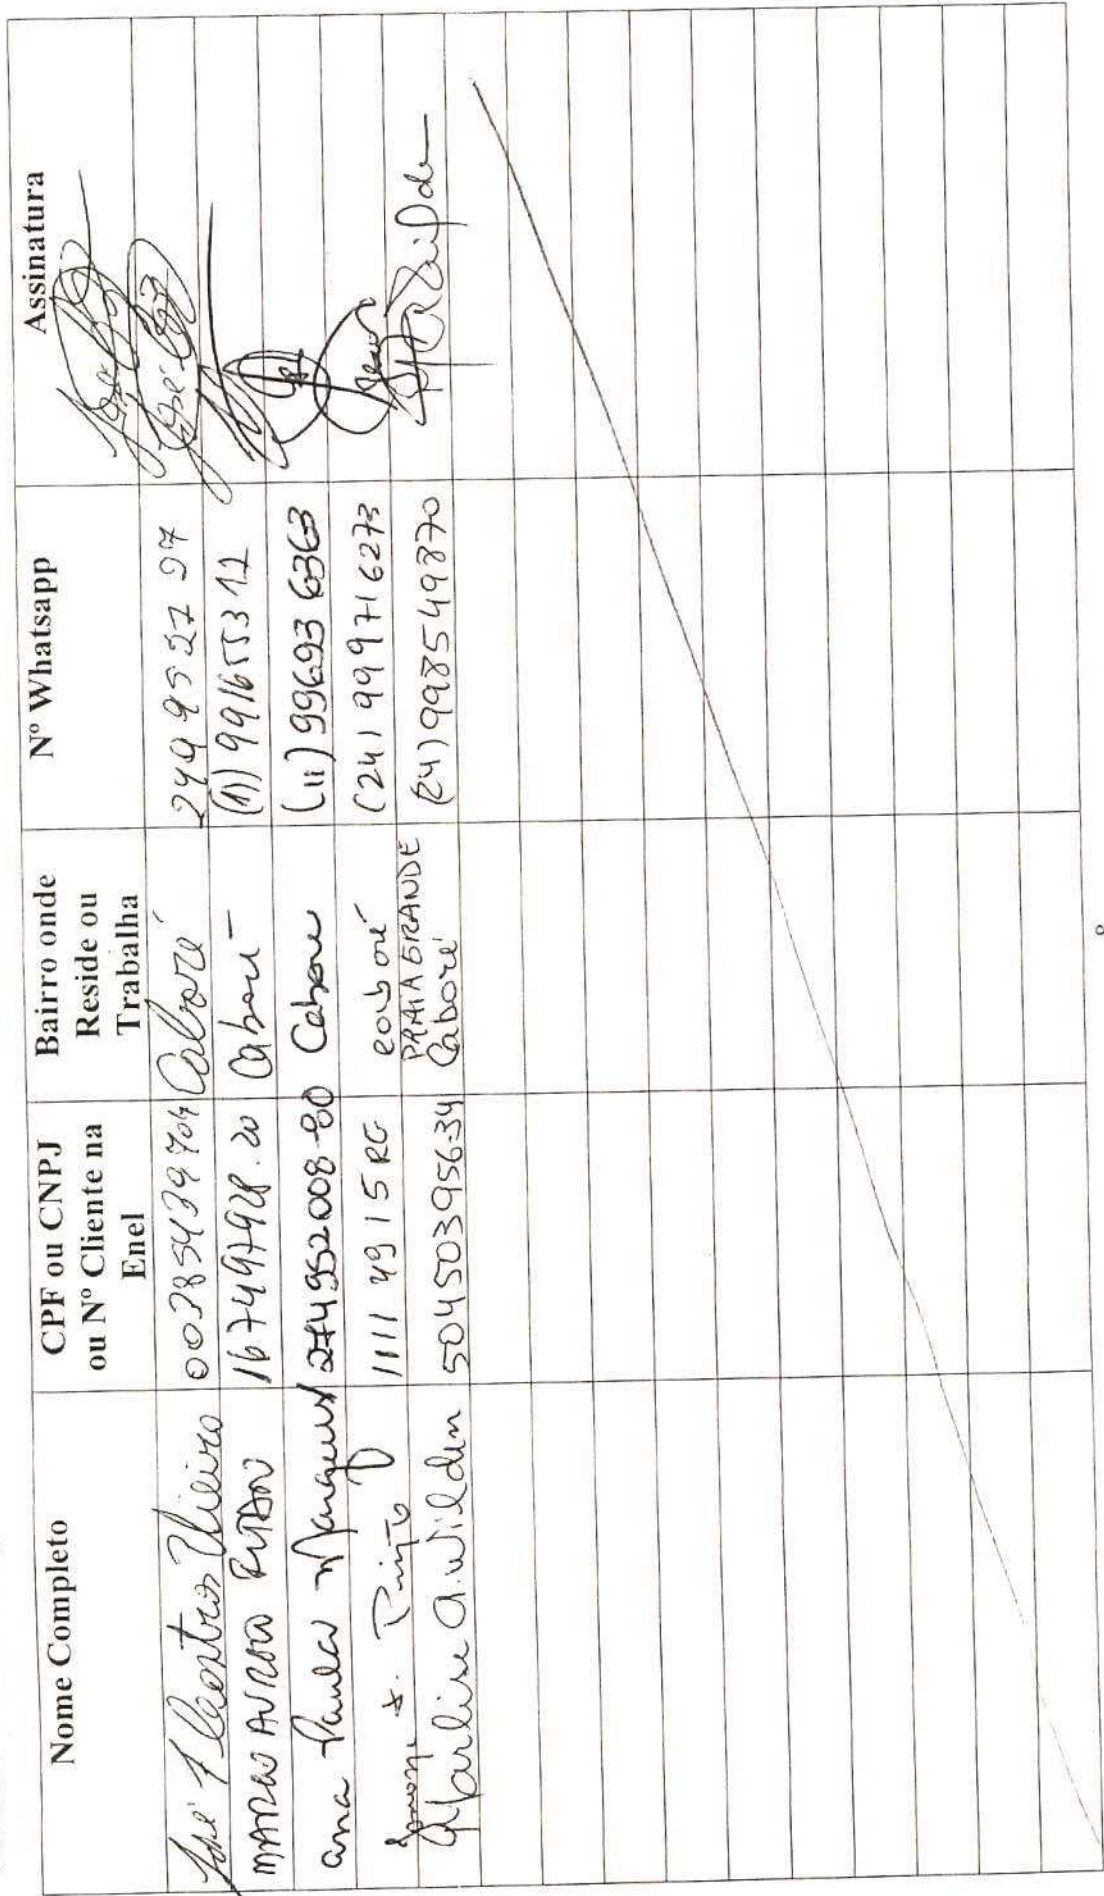 Nome Completo
CPF ou CNPJ
ou Nº Cliente na
Enel
Bairro onde
Reside ou
Trabalha
Nº Whatsapp
Assinatura
José F Vieira 00385439704 Caboré
MARCO 167497928.20 Caboré (11) 991655311
ana Paula Marques 274952008-80 Cabore (11) 99693 6363
Pinto 1111 4915 RG caboré (24) 999716273
PRAIA GRANDE
Marline A. Wilden 504503956-34 Caboré (24) 998549870
8